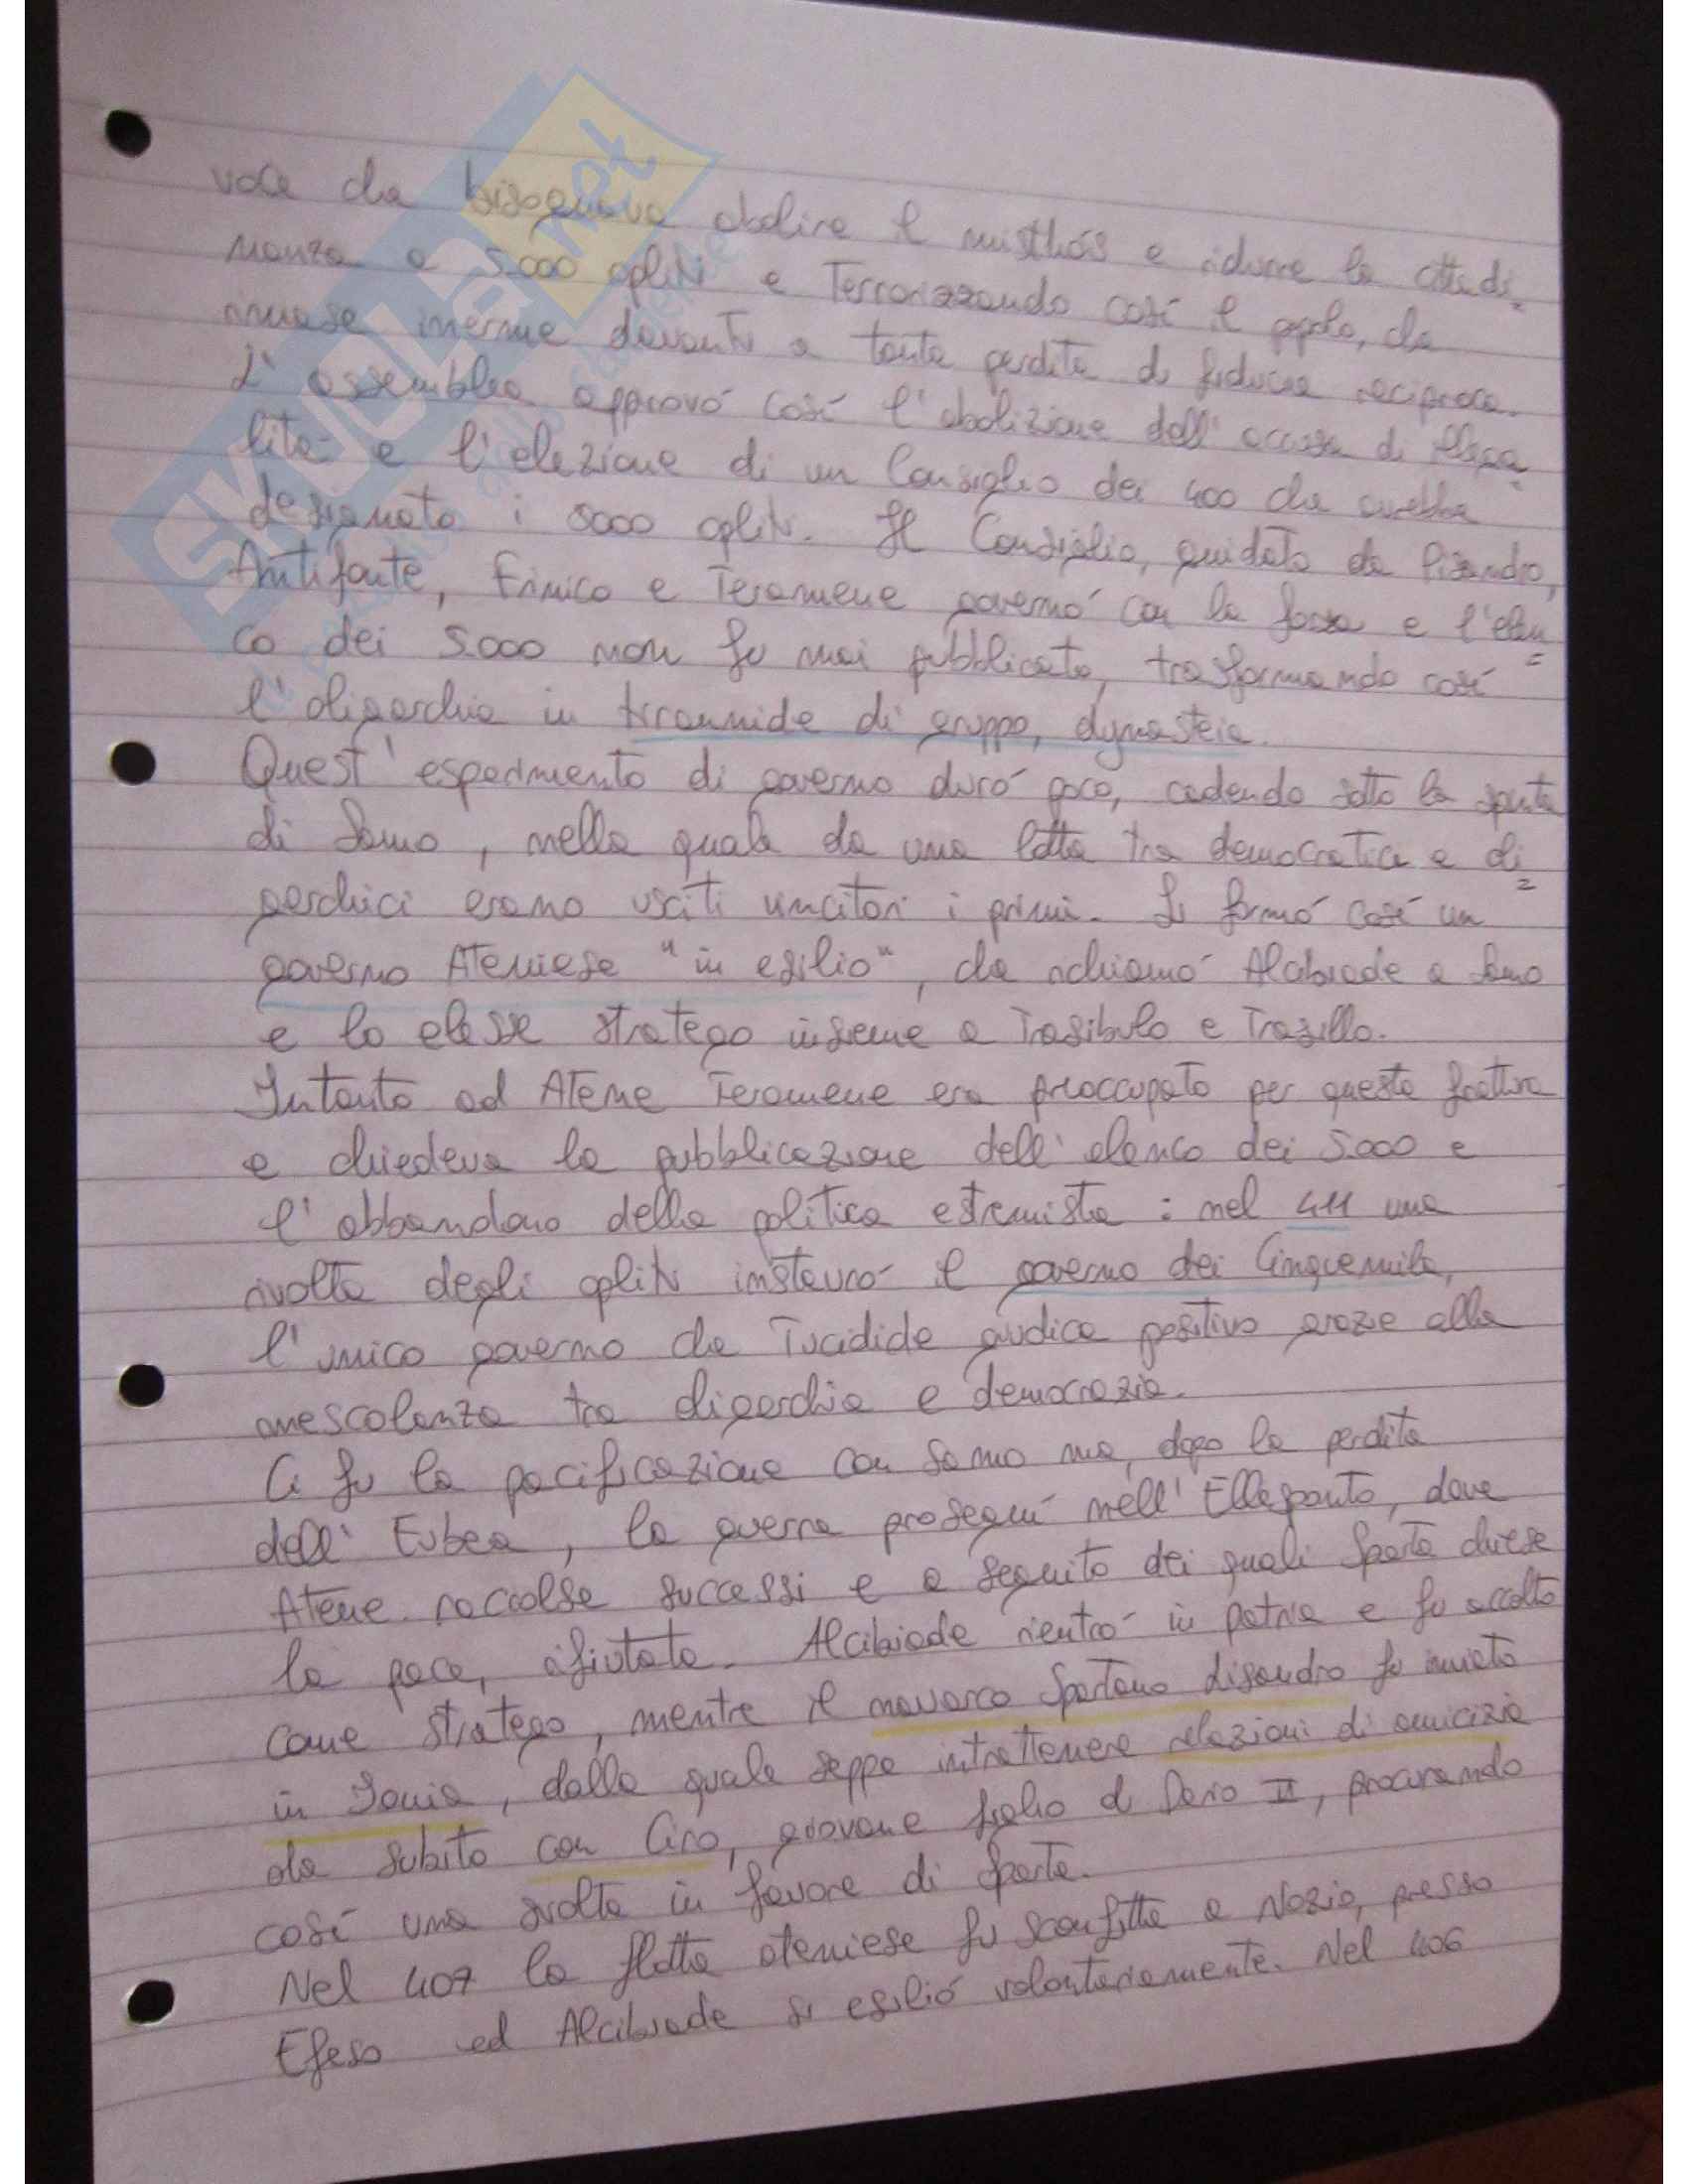 voce che bisognava abolire il misthós e ridurre la cittadi=
nanza a 5.000 opliti e terrorizzando così il popolo, che
rimase inerme davanti a tanta perdita di fiducia reciproca.
L'assemblea approvó così l'abolizione dell'accusa di illega=
lità e l'elezione di un Consiglio dei 400 che avrebbe
designato i 5000 opliti. Il Consiglio, guidato da Pisandro,
Antifonte, Frinico e Teramene governó con la forza e l'elen=
co dei 5.000 non fu mai pubblicato, trasformando così
l'oligarchia in tirannide di gruppo, dynasteia.
Quest'esperimento di governo duró poco, cadendo sotto la spinta
di Samo, nella quale da una lotta tra democratici e oli=
garchici erano usciti vincitori i primi. Si formó così un
governo Ateniese "in esilio", che richiamó Alcibiade a Samo
e lo elesse stratego insieme a Trasibulo e Trasillo.
Intanto ad Atene Teramene era preoccupato per questa frattura
e chiedeva la pubblicazione dell'elenco dei 5.000 e
l'abbandono della politica estremista: nel 411 una
rivolta degli opliti instauró il governo dei Cinquemila,
l'unico governo che Tucidide giudica positivo grazie alla
mescolanza tra oligarchia e democrazia.
Ci fu la pacificazione con Samo ma, dopo la perdita
dell'Eubea, la guerra proseguí nell'Ellesponto, dove
Atene raccolse successi e a seguito dei quali Sparta chiese
la pace, rifiutata. Alcibiade rientró in patria e fu accolto
come stratego, mentre il navarco Spartano Lisandro fu inviato
in Ionia, dalla quale seppe intrattenere relazioni di amicizia
da subito con Ciro, giovane figlio di Dario II, procurando
così una svolta in favore di Sparta.
Nel 407 la flotta ateniese fu sconfitta a Nozio, presso
Efeso ed Alcibiade si esilió volontariamente. Nel 406
SKUOLA.net